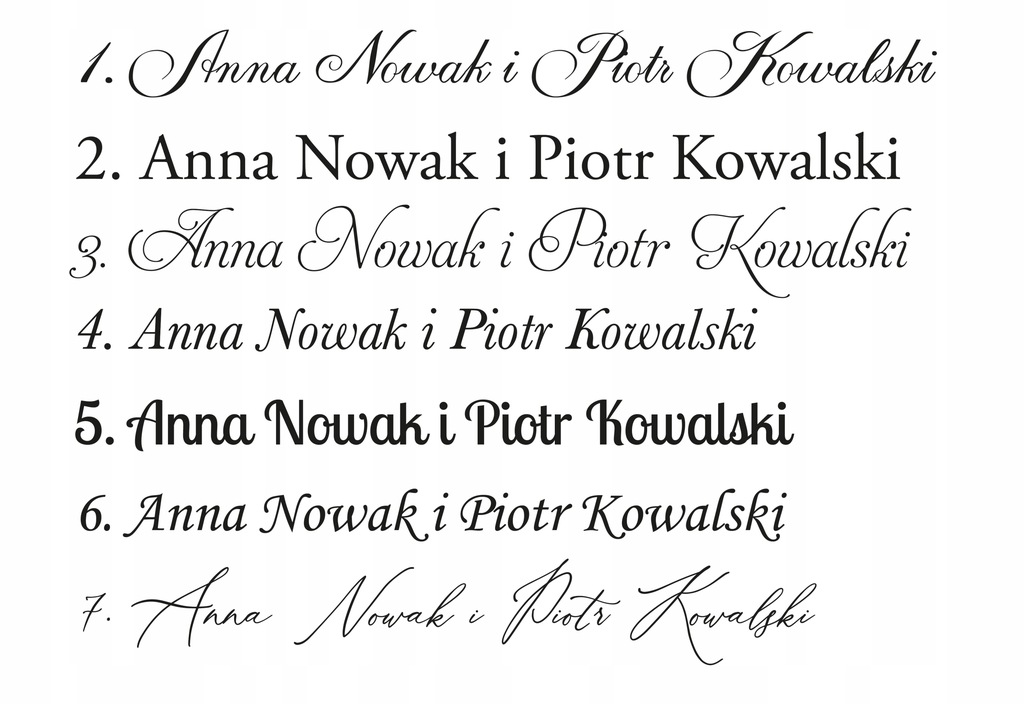 1. Anna Nowak i Piotr Kowalski
2. Anna Nowak i Piotr Kowalski
3. Anna Nowak i Piotr Kowalski
4. Anna Nowak i Piotr Kowalski
5. Anna Nowak i Piotr Kowalski
6. Anna Nowak i Piotr Kowalski
7. Anna Nowak i Piotr Kowalski